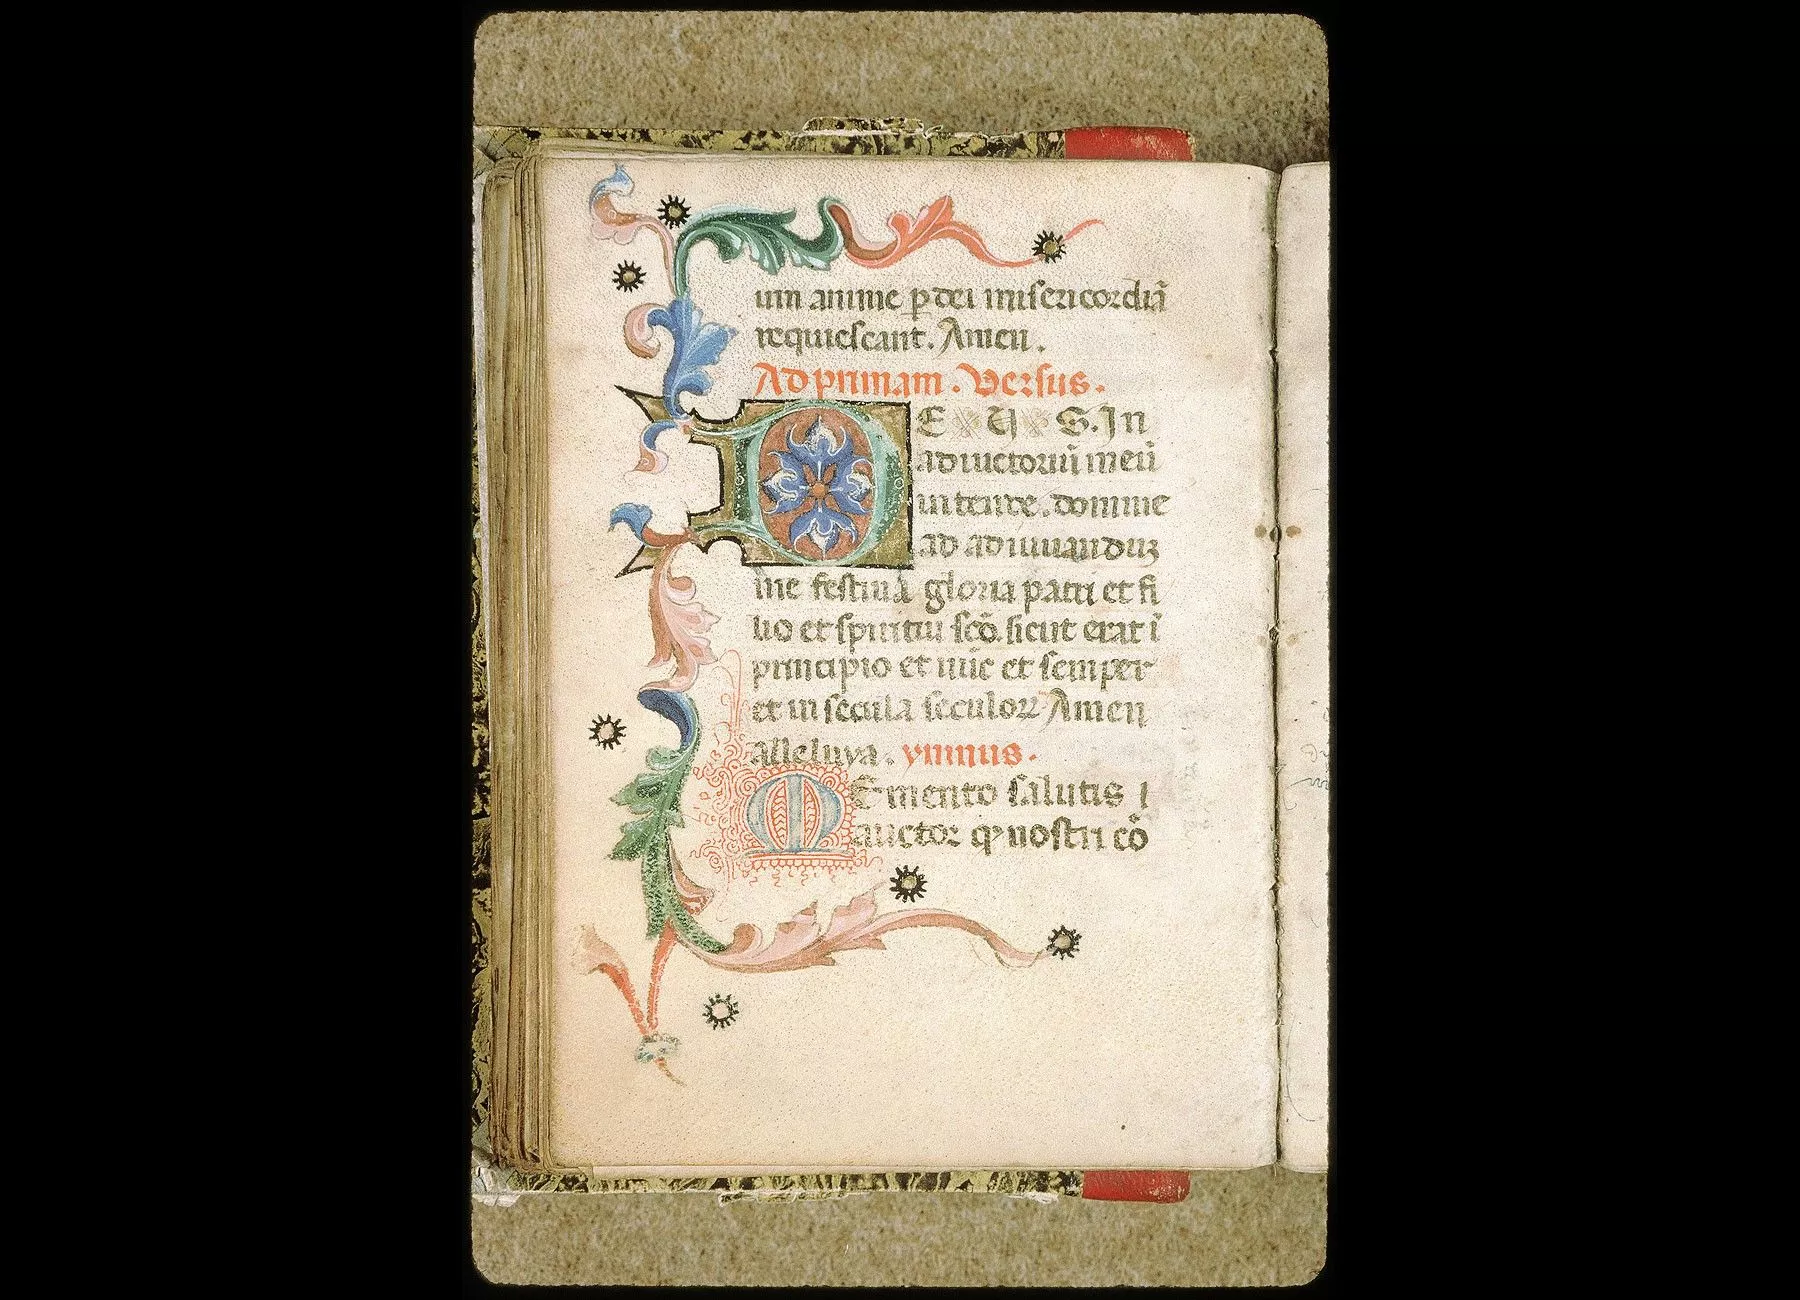 um anime ꝑ dei misericordiā
requiescant. Amen.
Ad primam. Versus.
DE U S. In
adiutoriū meū
intende. domine
ad adiuuanduz
me festina gloria patri et fi
lio et spiritui scō. sicut erat ī
principio et nūc et semper
et in secula seculoꝝ Amen
alleluya. ymnus.
Memento salutis
auctor ꝙ nostri cō